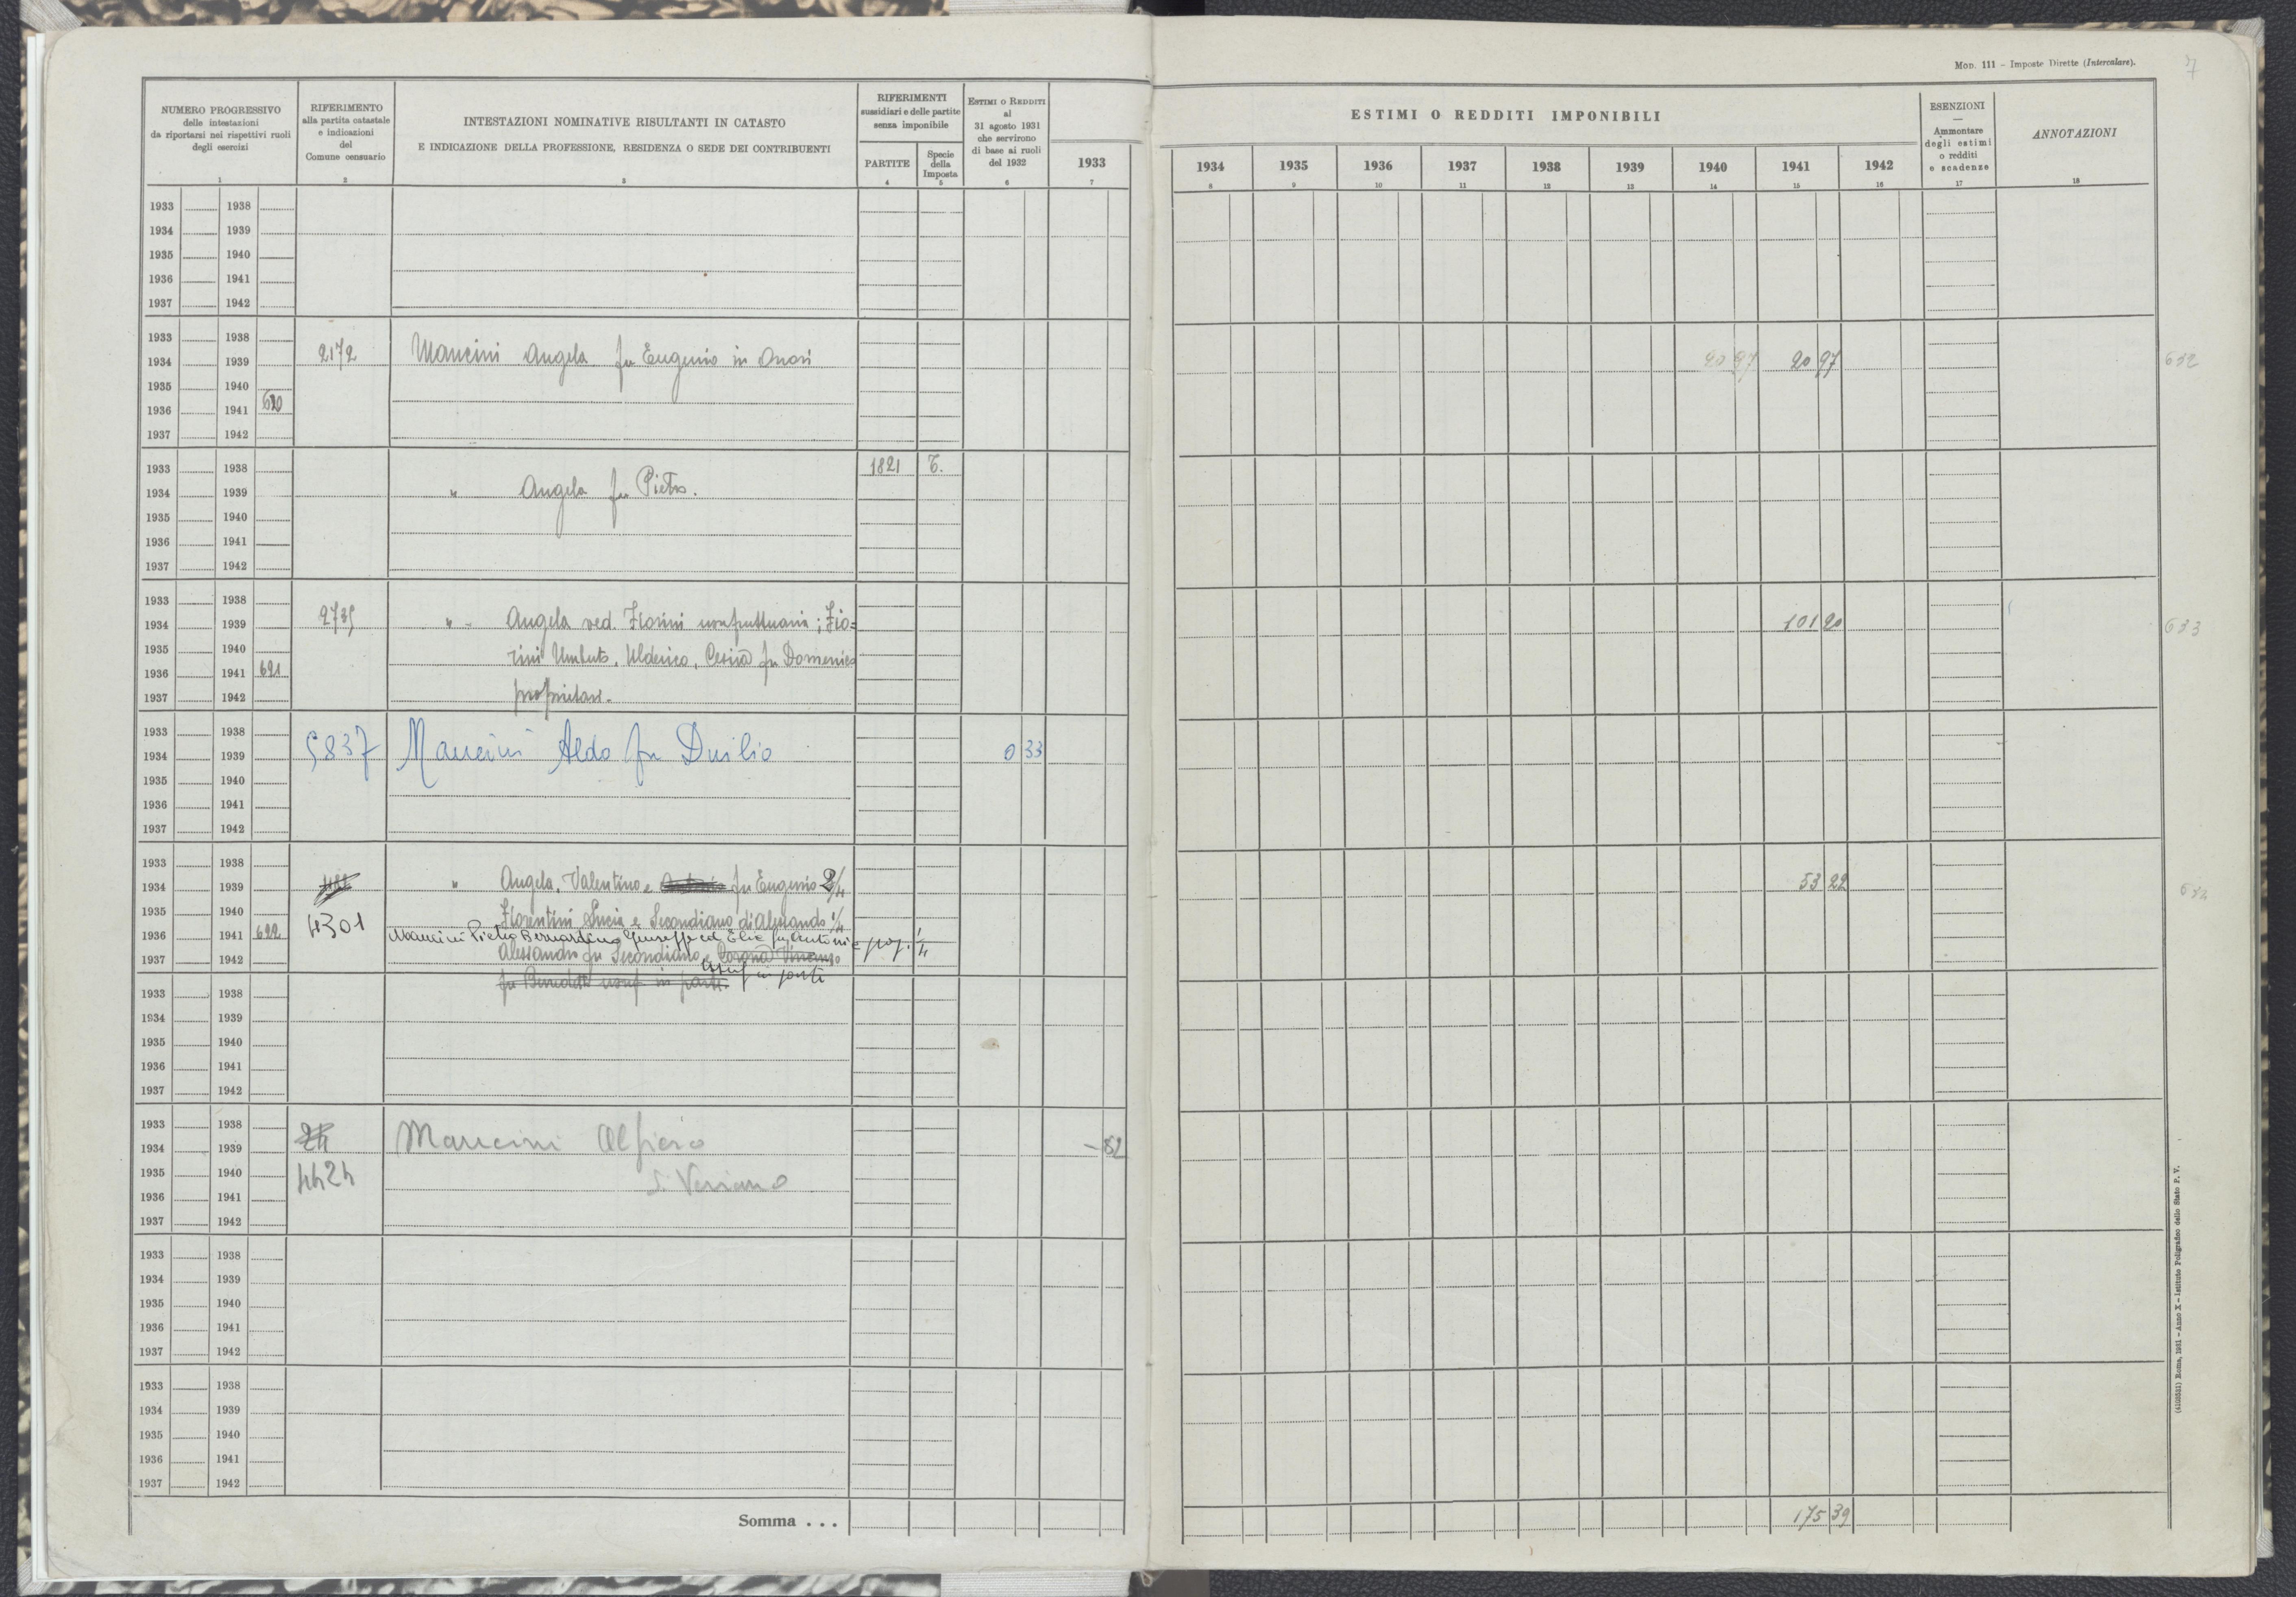 Mod. 111 – Imposte Dirette (Intercalare).
7
NUMERO PROGRESSIVO
delle intestazioni
da riportarsi nei rispettivi ruoli
degli esercizi
1
RIFERIMENTO
alla partita catastale
e indicazioni
del
Comune censuario
2
INTESTAZIONI NOMINATIVE RISULTANTI IN CATASTO
E INDICAZIONE DELLA PROFESSIONE, RESIDENZA O SEDE DEI CONTRIBUENTI
3
RIFERIMENTI
sussidiari e delle partite
senza imponibile
PARTITE
4
Specie
della
Imposta
5
ESTIMI O REDDITI
al
31 agosto 1931
che servirono
di base ai ruoli
del 1932
6
ESTIMI O REDDITI IMPONIBILI
1933 1934 1935 1936 1937 1938 1939 1940 1941 1942
7 8 9 10 11 12 13 14 15 16
ESENZIONI
—
Ammontare
degli estimi
o redditi
e scadenze
17
ANNOTAZIONI
18
1933 1938
1934 1939
1935 1940
1936 1941
1937 1942
1933 1938
1934 1939 2172 Mancini Angela fu Eugenio in 20 97 20 97
1935 1940
1936 1941 620
1937 1942
1933 1938 1821 T.
1934 1939 " Angela fu Pietro.
1935 1940
1936 1941
1937 1942
1933 1938
1934 1939 2735 " Angela ved. Fiorini usufruttuaria; Fio= 101 20 633
1935 1940
1936 1941 621 rini Umberto, Ulderico, Cesira fu Domenico
1937 1942 proprietari.
1933 1938
1934 1939 5837 Mancini Aldo fu Duilio 0 33
1935 1940
1936 1941
1937 1942
1933 1938
1934 1939 " Angela, Valentino e Antonio fu Eugenio 2/4 53 22
1935 1940 4301 Fiorentini Lucia e Secondiano di Alessandro 1/4
1936 1941 622 Mancini Pietro Bernardino Giuseppe ed Elia fu Antonio prop. 1/4
1937 1942 Alessandro fu Secondiano e Corona Vincenzo
usuf in parte
fu Benedetto usuf in parte.
1933 1938
1934 1939
1935 1940
1936 1941
1937 1942
1933 1938
1934 1939 24 Mancini Alfiero – 82
1935 1940 4424 di Veriano
1936 1941
1937 1942
1933 1938
1934 1939
1935 1940
1936 1941
1937 1942
1933 1938
1934 1939
1935 1940
1936 1941
1937 1942
Somma . . . 175 39
(4103521) Roma, 1931 – Anno X – Istituto Poligrafico dello Stato P. V.